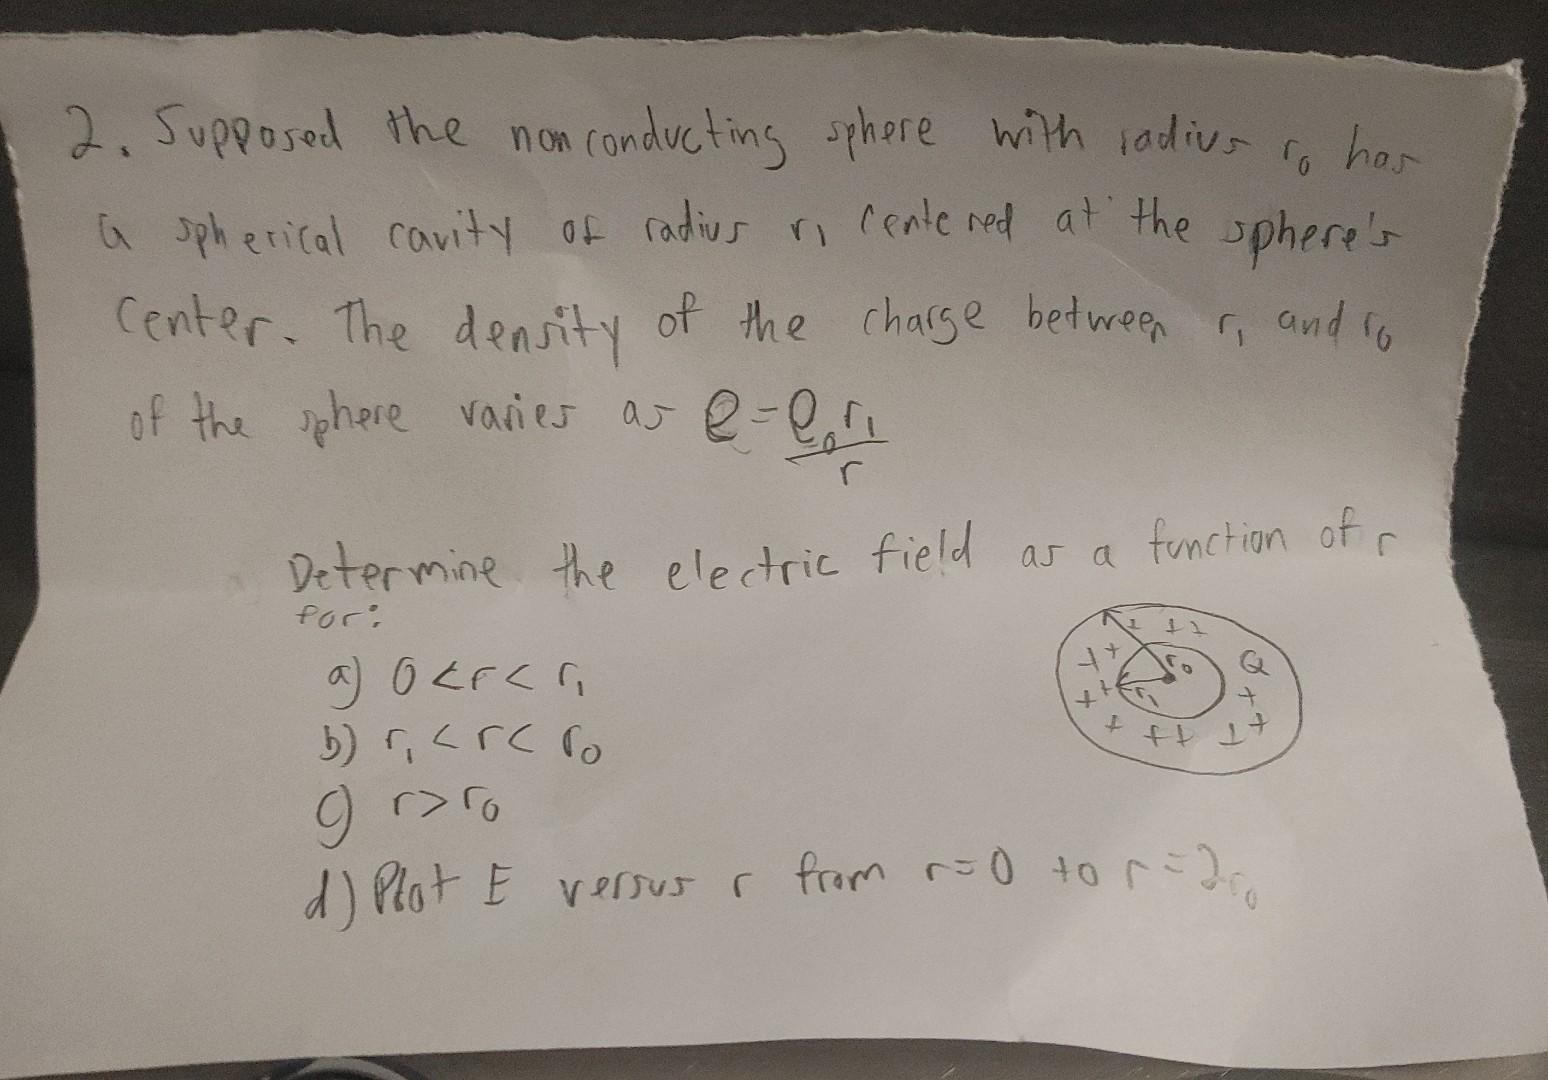 2. Supposed the nonconducting sphere with radius r₀ has
a spherical cavity of radius r₁ centered at the sphere's
Center. The density of the charge between r₁ and r₀
of the sphere varies as ρ = ρ₀r₁/r
Determine the electric field as a function of r
for:
a) 0 < r < r₁
b) r₁ < r < r₀
c) r > r₀
d) Plot E versus r from r = 0 to r = 2r₀
r₀
Q
r₁